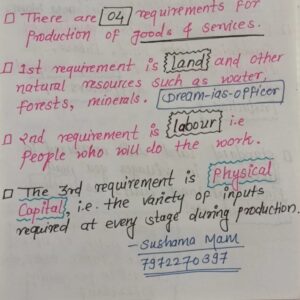 □ There are 04 requirements for
Production of goods & services.
□ 1st requirement is land and other
natural resources such as water,
forests, minerals. Dream-ias-officer
□ 2nd requirement is labour i.e
People who will do the work.
□ The 3rd requirement is Physical
Capital, i.e. the variety of inputs
required at every stage during production.
- Sushama Mam
7972270397